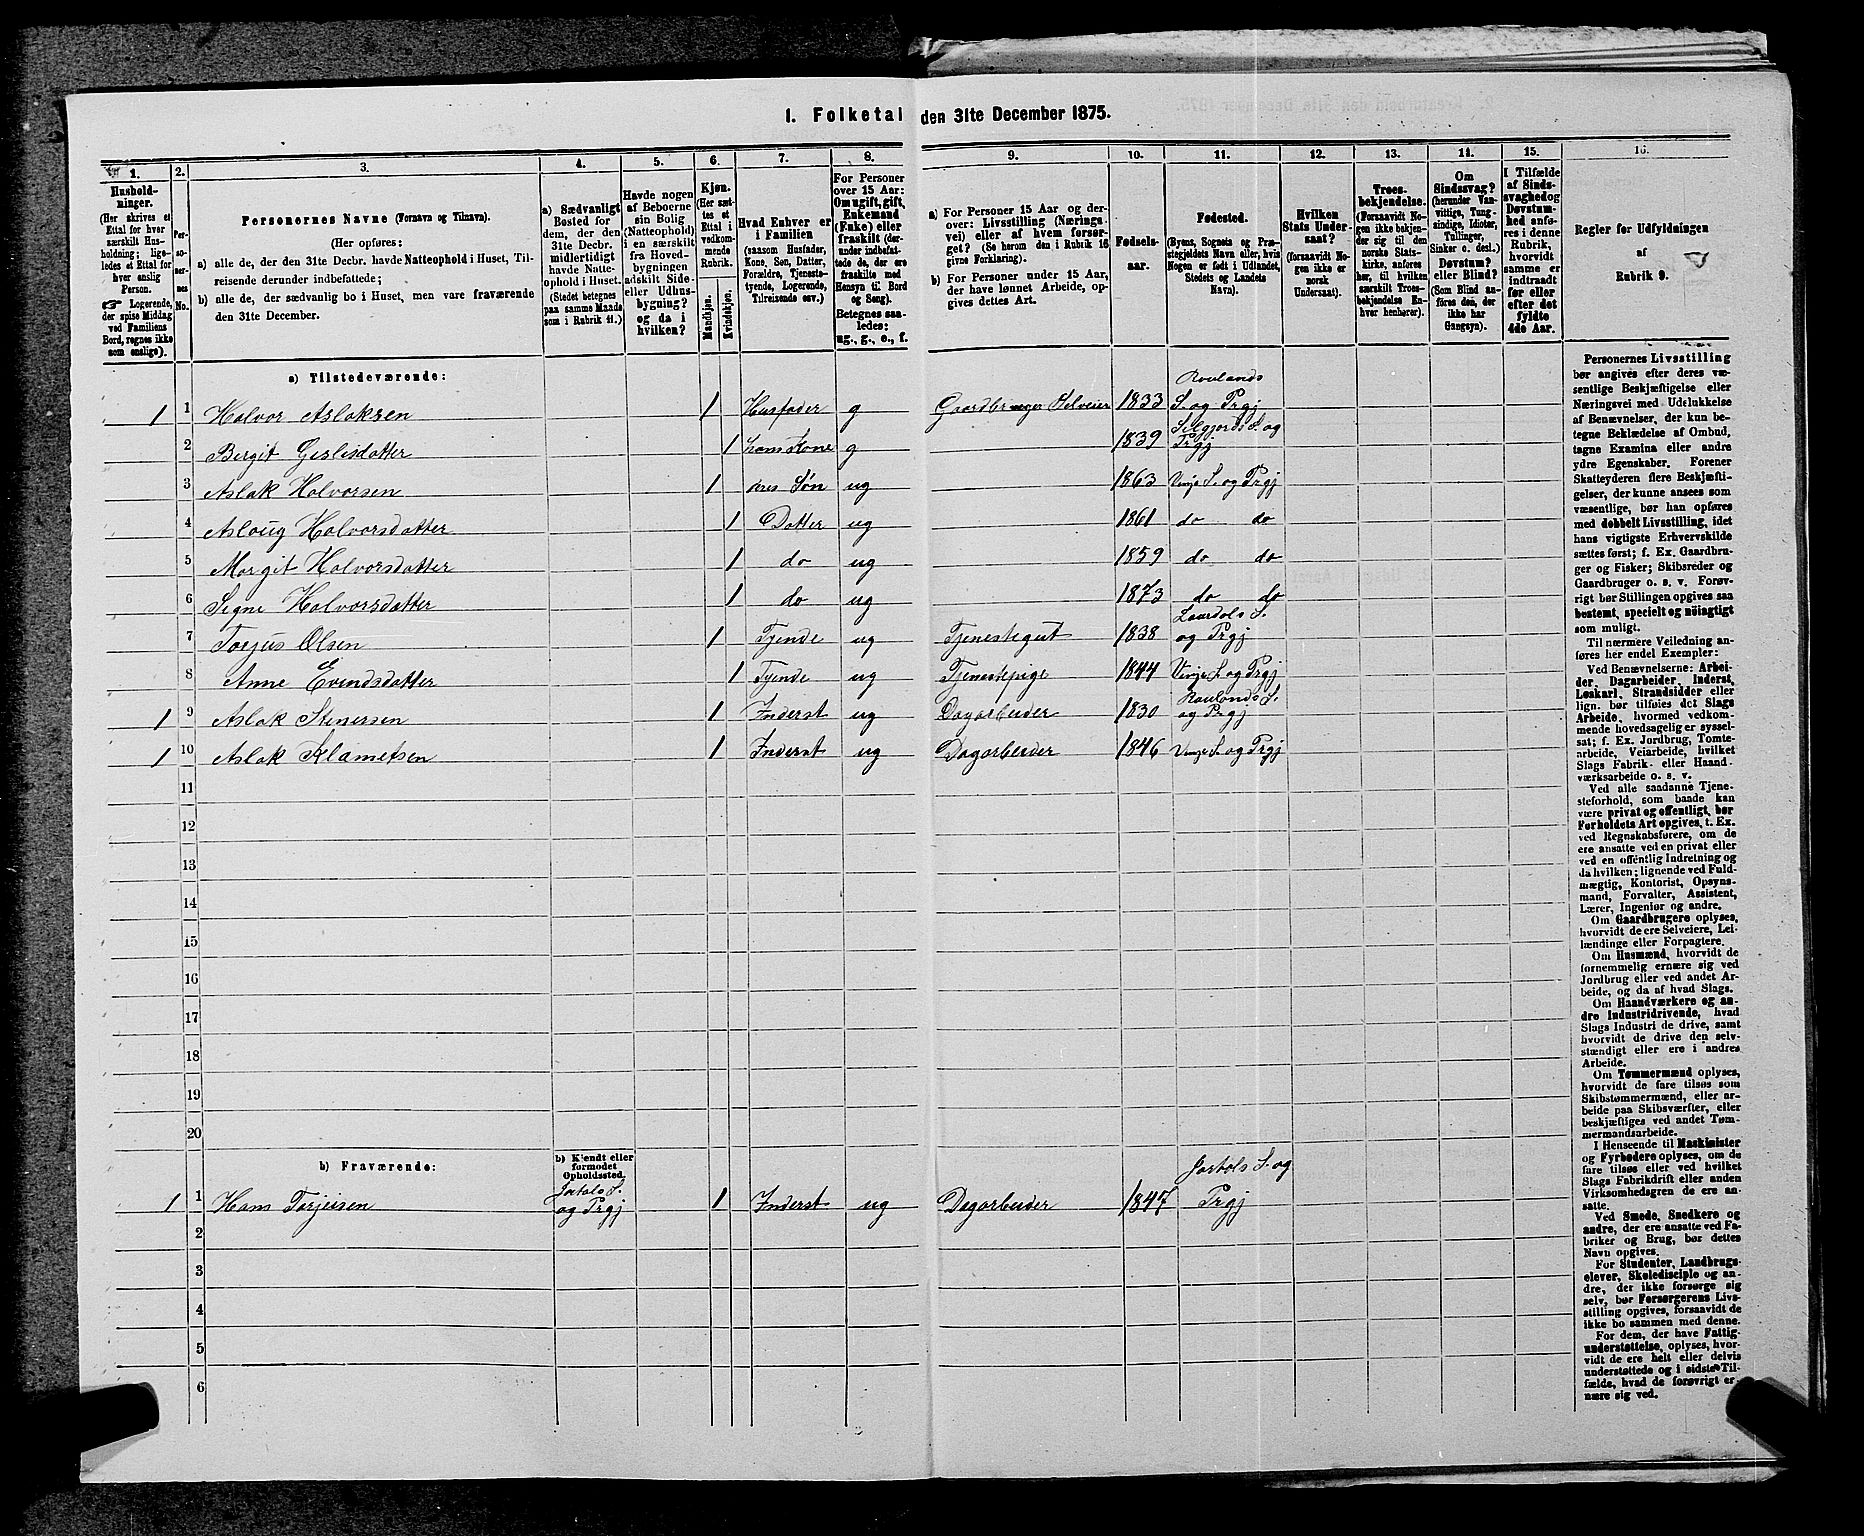 1. Folketal den 31te December 1875.
1. 2. 3. 4. 5. 6. 7. 8. 9. 10. 11. 12. 13. 14. 15. 16.
Hushold-
ninger.
(Her skrives et
Ettal for hver
særskilt Hus-
holdning; lige-
ledes et Ettal for
hver enslig
Person.
☞ Logerende,
der spise Middag
ved Familiens
Bord, regnes ikke
som enslige).
Per-
so-
ner-
nes
No.
Personernes Navne (Fornavn og Tilnavn).
(Her opføres:
a) alle de, der den 31te Decbr. havde Natteophold i Huset, Til-
reisende derunder indbefattede;
b) alle de, der sædvanlig bo i Huset, men vare fraværende
den 31te December.
a) Sædvanligt
Bosted for
dem, der den
31te Decbr.
midlertidigt
havde Natte-
ophold i Huset.
(Stedet betegnes
paa samme Maade
som i Rubrik 11.)
Havde nogen
af Beboerne
sin Bolig
(Natteophold)
i en særskilt
fra Hoved-
bygningen
adskilt Side-
eller Udhus-
bygning?
og da i
hvilken?
Kjøn.
(Her sæt-
tes et
Ettal i
vedkom-
mende
Rubrik.
Mandkjøn.
Kvindekjøn.
Hvad Enhver er
i Familien
(saasom Husfader,
Kone, Søn, Datter,
Forældre, Tjeneste-
tyende, Logerende,
Tilreisende osv.)
For Personer
over 15 Aar:
Om ugift, gift,
Enkemand
(Enke) eller
fraskilt (der-
under indbefat-
tede de, der ere
fraskilte med
Hensyn til Bord
og Seng).
Betegnes saa-
ledes:
ug., g., e., f.
a) For Personer 15 Aar og der-
over: Livsstilling (Nærings-
vei) eller af hvem forsør-
get? (Se herom den i Rubrik 16
givne Forklaring).
b) For Personer under 15 Aar,
der have lønnet Arbeide, op-
gives dettes Art.
Fødsels-
aar.
Fødested.
(Byens, Sognets og Præ-
stegjeldets Navn eller, hvis
Nogen er født i Udlandet,
Stedets og Landets
Navn).
Hvilken
Stats Under-
saat?
(forsaavidt No-
gen ikke er
norsk
Undersaat).
Troes-
bekjendelse.
(Forsaavidt No-
gen ikke bekjen-
der sig til den
norske Stats-
kirke, anføres
her, til hvilken
særskilte Troes-
bekjendelse En-
hver henhører).
Om
Sindssvag?
(herunder Van-
vittige, Tung-
sindige, Idioter,
Tullinger,
Sinker o. desl.)
Døvstum?
eller Blind?
(Som Blind an-
føres den, der
ikke har
Gangsyn).
I Tilfælde
af Sinds-
svaghed og
Døvstum-
hed anfø-
res i denne
Rubrik,
hvorvidt
samme er
indtraadt
før eller
efter det
fyldte
4de Aar.
Regler for Udfyldningen
af
Rubrik 9.
a) Tilstedeværende:
1 1 Halvor Aslaksen 1 Husfader g Gaardbruger Selveier 1833 Roulands S. og Prgj
2 Birgit Gislisdatter 1 hans Kone g 1839 Silgjords S. og Prgj
3 Aslak Halvorsen 1 deres Søn ug 1863 Vinje S. og Prgj
4 Aslaug Halvorsdatter 1 Datter ug 1861 do do
5 Margit Halvorsdatter 1 do ug 1859 do do
6 Signe Halvorsdatter 1 do ug 1873 do do
7 Torjus Olsen 1 Tyende ug Tjenestegut 1838 Laurdals S. og Prgj
8 Anne Evindsdatter 1 Tyende ug Tjenestepige 1844 Vinje S. og Prgj
1 9 Aslak Stenersen 1 Inderst ug Dagarbeider 1830 Raulands S. og Prgj
1 10 Aslak Klametsen 1 Inderst ug Dagarbeider 1846 Vinje S. og Prgj
11
12
13
14
15
16
17
18
19
20
b) Fraværende:
b) Kjendt eller
formodet
Opholdssted.
1 1 Hans Torjeisen S. og Prgj 1 Inderst ug Dagarbeider 1847 S. og Prgj
2
3
4
5
6
Personernes Livsstilling
bør angives efter deres væ-
sentlige Beskjæftigelse eller
Næringsvei med Udelukkelse
af Benævnelser, der kun be-
tegne Beklædelse af Ombud,
tagne Examina eller andre
ydre Egenskaber. Forener
Skatteyderen flere Beskjæfti-
gelser, der kunne ansees som
væsentlige, bør han opføres
med dobbelt Livsstilling, idet
hans vigtigste Erhvervskilde
sættes først; f. Ex. Gaardbru-
ger og Fisker; Skibsreder og
Gaardbruger o. s. v. Forøv-
rigt bør Stillingen opgives saa
bestemt, specielt og nøiagtigt
som muligt.
Til nærmere Veiledning an-
føres her endel Exempler:
Ved Benævnelserne: Arbei-
der, Dagarbeider, Inderst,
Løskarl, Strandsidder eller
lign. bør tilføies det Slags
Arbeide, hvormed vedkom-
mende hovedsagelig er syssel-
sat; f. Ex. Jordbrug, Tomte-
arbeide, Veiarbeide, hvilket
Slags Fabrik- eller Haand-
værksarbeide o. s. v.
Ved alle saadanne Tjene-
steforhold, som baade kan
være privat og offentligt, bør
Forholdets Art opgives, t. Ex.
ved Regnskabsførere, om de
ere ansatte ved en privat eller
ved en offentlig Indretning og
da hvilken; lignende ved Fuld-
mægtig, Kontorist, Opsyns-
mand, Forvalter, Assistent,
Lærer, Ingeniør og andre.
Om Gaardbrugere oplyses,
hvorvidt de ere Selveiere, Lei-
lændinge eller Forpagtere.
Om Husmænd, hvorvidt de
fornemmelig ernære sig ved
Jordbrug eller ved andet Ar-
beide, og da af hvad Slags.
Om Haandværkere og an-
dre Industridrivende, hvad
Slags Industri de drive, samt
hvorvidt de drive den selv-
stændigt eller ere i andres
Arbeide.
Om Tømmermænd oplyses,
hvorvidt de fare tilsøs som
Skibstømmermænd, eller ar-
beide paa Skibsværfter, eller
beskjæftiges ved andet Tøm-
mermandsarbeide.
I Henseende til Maskinister
og Fyrbødere oplyses, om de
fare tilsøs eller ved hvilket
Slags Fabrikdrift eller anden
Virksomhedsgren de ere an-
satte.
Ved Smede, Snedkere og
andre, der ere ansatte ved Fa-
briker og Brug, bør dettes
Navn opgives.
For Studenter, Landbrugs-
elever, Skoledisciple og an-
dre, der ikke forsørge sig
selv, bør Forsørgerens Livs-
stilling opgives, forsaavidt de
ikke bo sammen med denne.
For dem, der have Fattig-
understøttelse, oplyses, hvor-
vidt de ere helt eller delvis
understøttede og i sidste Til-
fælde, hvad de forøvrigt er-
nære sig ved.